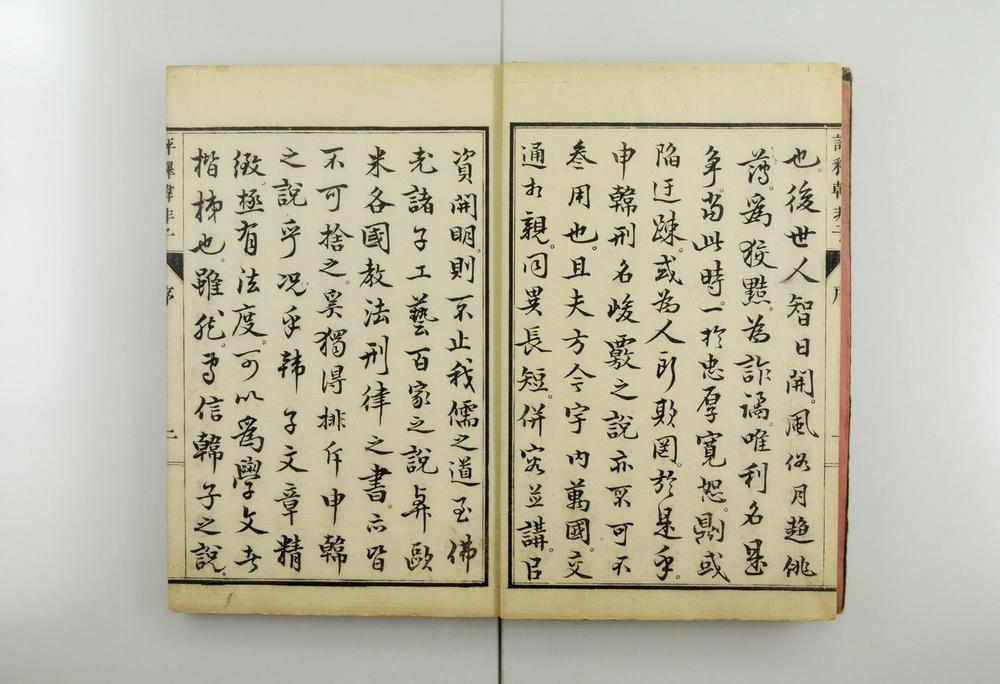 也。後世人智日開。風俗月趨佻
薄。為狡黠。為詐譎。唯利名是
爭。當此時。一於忠厚寬恕。則或
陷迂疎。或為人所欺罔。於是乎。
申韓刑名峻覈之說亦不可不
参用也。且夫方今宇內萬國。交
通相親。同異長短。併容並講。以
資開明。則不止我儒之道至佛
老諸子工藝百家之說與歐
米各國教法刑律之書。亦皆
不可捨之。奚獨得排斥申韓
之說乎況乎韓子文章精
緻。極有法度。可以為學文者
楷梯也。雖然專信韓子之說。
評釋韓非子
序
一
評釋韓非子
序
二